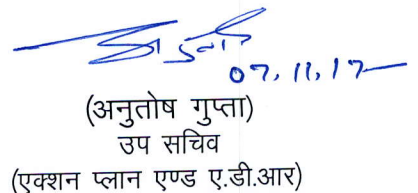 07.11.17
(अनुतोष गुप्ता)
उप सचिव
(एक्शन प्लान एण्ड ए.डी.आर)